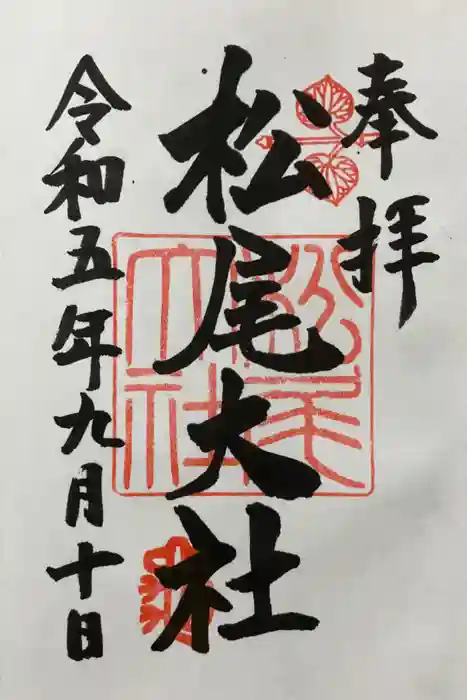 奉拝
松尾大社
令和五年九月十日
松尾大社